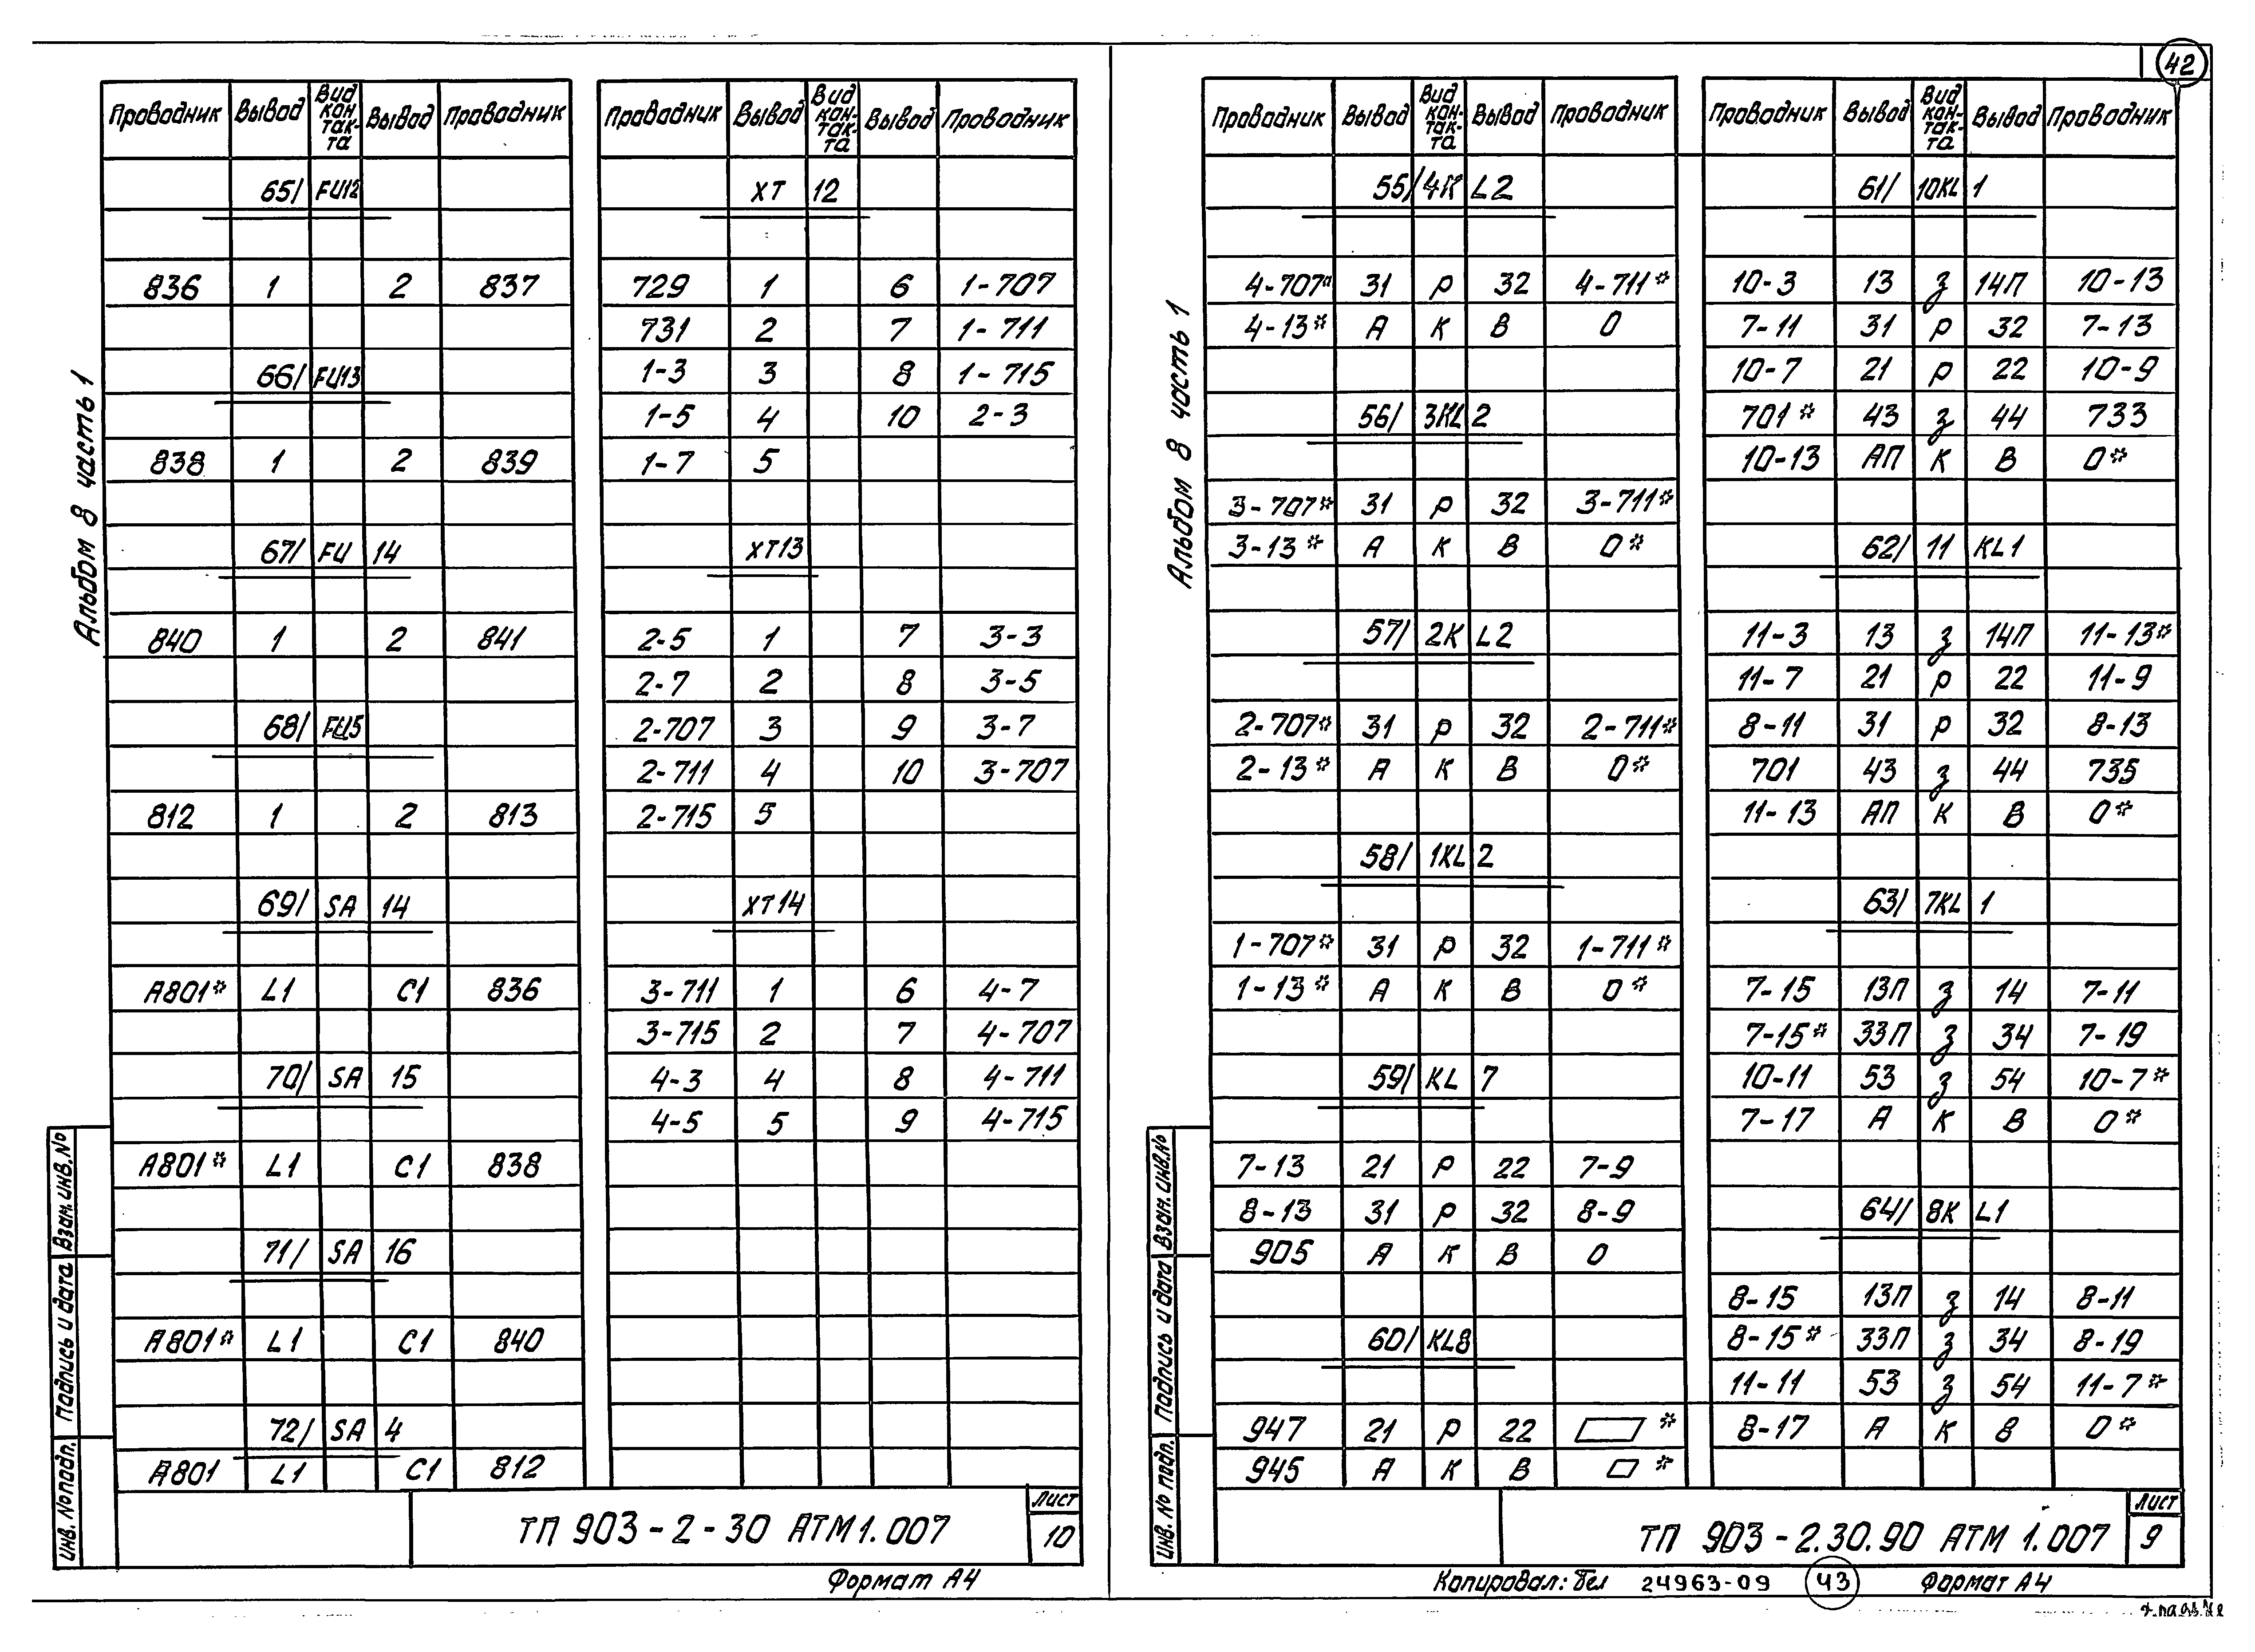 42
Альбом 8 часть 1
Проводник Вывод Вид кон-так-та Вывод Проводник
65/ FU12
836 1 2 837
66/ FU13
838 1 2 839
67/ FU 14
840 1 2 841
68/ FU5
812 1 2 813
69/ SA 14
А801* L1 C1 836
70/ SA 15
А801* L1 C1 838
71/ SA 16
А801* L1 C1 840
72/ SA 4
А801 L1 C1 812
Проводник Вывод Вид кон-так-та Вывод Проводник
XT 12
729 1 6 1-707
731 2 7 1-711
1-3 3 8 1-715
1-5 4 10 2-3
1-7 5
XT13
2-5 1 7 3-3
2-7 2 8 3-5
2-707 3 9 3-7
2-711 4 10 3-707
2-715 5
XT14
3-711 1 6 4-7
3-715 2 7 4-707
4-3 4 8 4-711
4-5 5 9 4-715
Инв. № подл. Подпись и дата Взам. инв. №
ТП 903-2-30 АТМ1.007
Лист
10
Формат А4
Альбом 8 часть 1
Проводник Вывод Вид кон-так-та Вывод Проводник
55/ 4К L2
4-707* 31 р 32 4-711*
4-13* А К В 0
56/ 3KL 2
3-707* 31 р 32 3-711*
3-13* А К В 0*
57/ 2К L2
2-707* 31 р 32 2-711*
2-13* А К В 0*
58/ 1KL 2
1-707* 31 р 32 1-711*
1-13* А К В 0*
59/ KL 7
7-13 21 р 22 7-9
8-13 31 р 32 8-9
905 А К В 0
60/ KL8
947 21 р 22 *
945 А К В *
Проводник Вывод Вид кон-так-та Вывод Проводник
61/ 10KL 1
10-3 13 з 14П 10-13
7-11 31 р 32 7-13
10-7 21 р 22 10-9
701* 43 з 44 733
10-13 АП К В 0*
62/ 11 KL1
11-3 13 з 14П 11-13*
11-7 21 р 22 11-9
8-11 31 р 32 8-13
701 43 з 44 735
11-13 АП К В 0*
63/ 7KL 1
7-15 13П з 14 7-11
7-15* 33П з 34 7-19
10-11 53 з 54 10-7*
7-17 А К В 0*
64/ 8К L1
8-15 13П з 14 8-11
8-15* 33П з 34 8-19
11-11 53 з 54 11-7*
8-17 А К В 0*
Инв. № подл. Подпись и дата Взам. инв. №
ТП 903-2.30.90 АТМ 1.007
Лист
9
Копировал: Бел 24963-09 43 Формат А4